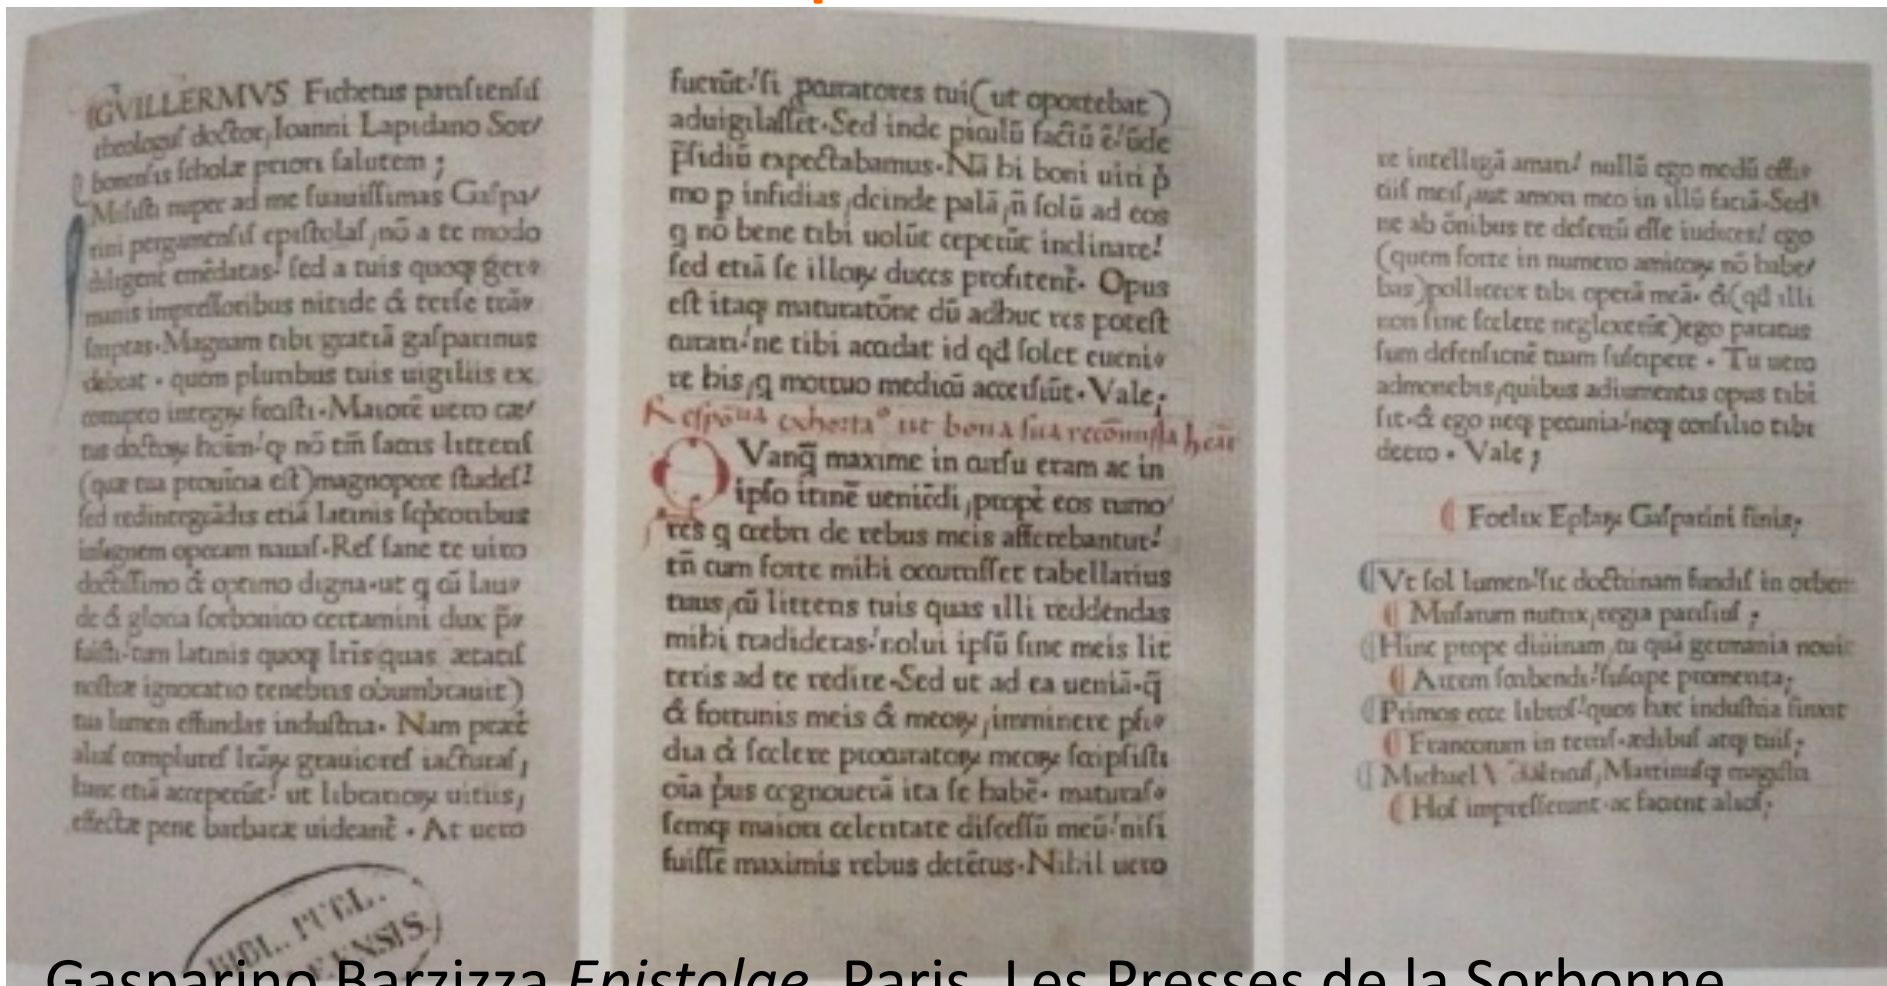 GVILLERMVS Fichetus parisiensis
theologus doctor, Ioanni Lapidano Sor/
bonensis scholæ priori salutem ;
Misisti nuper ad me suauissimas Gaspa/
rini pergamensis epistolas, nō a te modo
diligent̄ emēdatas! sed a tuis quoqꝫ ger/
manis impressoribus nitide & terse trās/
scriptas. Magnam tibi gratiā gasparinus
debeat . quem pluribus tuis uigiliis ex
corrupto integrꝝ fecisti. Maiorē uero cæ/
tus doctorꝝ hoīm! q̄ nō tm̄ sacris litteris
(quæ tua prouīcia est) magnopere studes!
sed redintegrādis etiā latinis sc̄ptoribus
insignem operam nauas. Res sane te uiro
doctissimo & optimo digna. ut q̄ cū lau/
de & gloria sorbonico certamini dux p̄/
fuisti! tum latinis quoqꝫ l̄ris (quas ætatis
nostræ ignoratio tenebris obumbrauit)
tua lumen effundas industria. Nam præt̄
alias complures l̄rarꝝ grauiores iacturas,
hanc etiā acceperūt! ut librariorꝝ uitiis,
effectæ pene barbaræ uideant̄ . At uero
BIBL. PUBL.
fuerūt! si p̱curatores tui (ut oportebat)
aduigilasset. Sed inde piculū factū ē! ūde
p̄sidiū expectabamus. Nā hi boni uiri p̄
mo p insidias, deinde palā, n̄ solū ad eos
q nō bene tibi uolūt ceperūt inclinare!
sed etiā se illorꝝ duces profitent̄. Opus
est itaqꝫ maturatōne dū adhuc res potest
curari! ne tibi accidat id qđ solet eueni/
re his, q mortuo medicū accersiūt. Vale;
Respōsiua exhorta° ut bona sua
QVanq̄ maxime in cursu eram ac in
ipso itinē ueniēdi, prope eos rumo/
res q crebri de rebus meis afferebantur!
tn̄ cum forte mihi occurrisset tabellarius
tuus, cū litteris tuis quas illi reddendas
mihi tradideras! nolui ipsū sine meis lit
teris ad te redire. Sed ut ad ea ueniā. q̄
& fortunis meis & meorꝝ, imminere pfi/
dia & scelere procuratorꝝ meorꝝ scripsisti
oīa prius cognouerā ita se habē. maturas/
semqꝫ maiori celeritate discessū meū! nisi
fuissē maximis rebus detētus. Nihil uero
re intelligā amari! nullū ego modū offi/
ciis meis, aut amori meo in illū faciā. Sed
ne ab ōnibus te desertū esse iudices! ego
(quem forte in numero amicorꝝ nō habe/
bas) polliceor tibi operā meā. & (qđ illi
non sine scelere neglexerūt) ego paratus
sum defensionē tuam suscipere . Tu uero
admonebis, quibus adiumentis opus tibi
sit. & ego neqꝫ pecunia! neqꝫ consilio tibi
deero . Vale ;
Foelix Eplarꝝ Gasparini finis;
Vt sol lumen! sic doctrinam fundis in orbem
Musarum nutrix, regia parisius ;
Hinc prope diuinam, tu quā germania nouit
Artem scribendi! suscipe promerita;
Primos ecce libros! quos hæc industria finxit
Francorum in terris. ædibus atqꝫ tuis;
Michael Martinusqꝫ magistri
Hos impresserunt. ac facient alios;
Gasparino Barzizza Epistolae, Paris, Les Presses de la Sorbonne